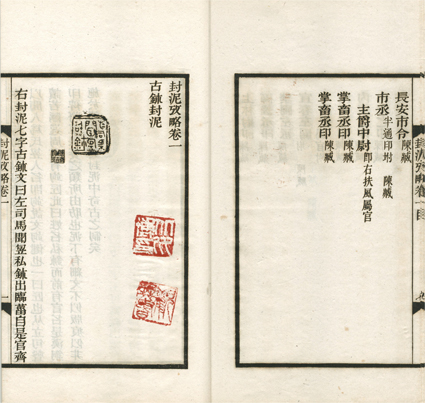 長安市令 陳臧
市丞 半通印坿 陳臧
主爵中尉 即右扶風屬官
掌畜丞印 陳臧
掌畜丞印 陳臧
封泥攷略卷一目
封泥攷略卷一
古鉨封泥
右封泥七字古鉨文曰左司馬聞私鉨出臨菑自是官齊
封泥攷略卷一
一